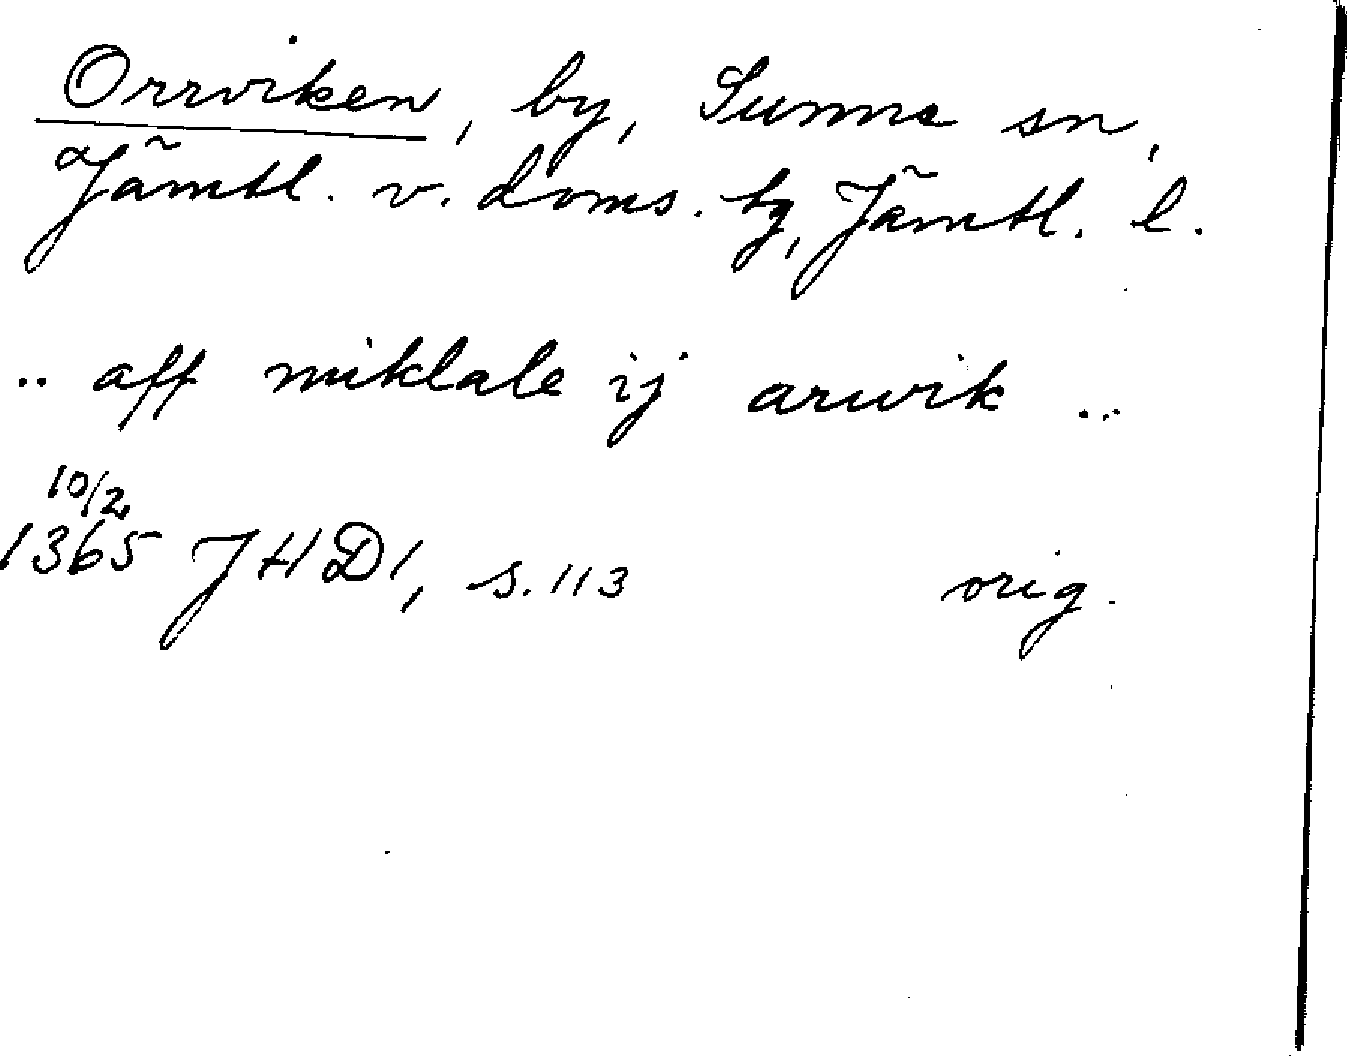 Orrviken, by, Sunne sn,
Jämtl. v. doms. tg, Jämtl. l.
.. aff miklale ij arwik ..
10/2
1365 JHD1, s. 113 orig.